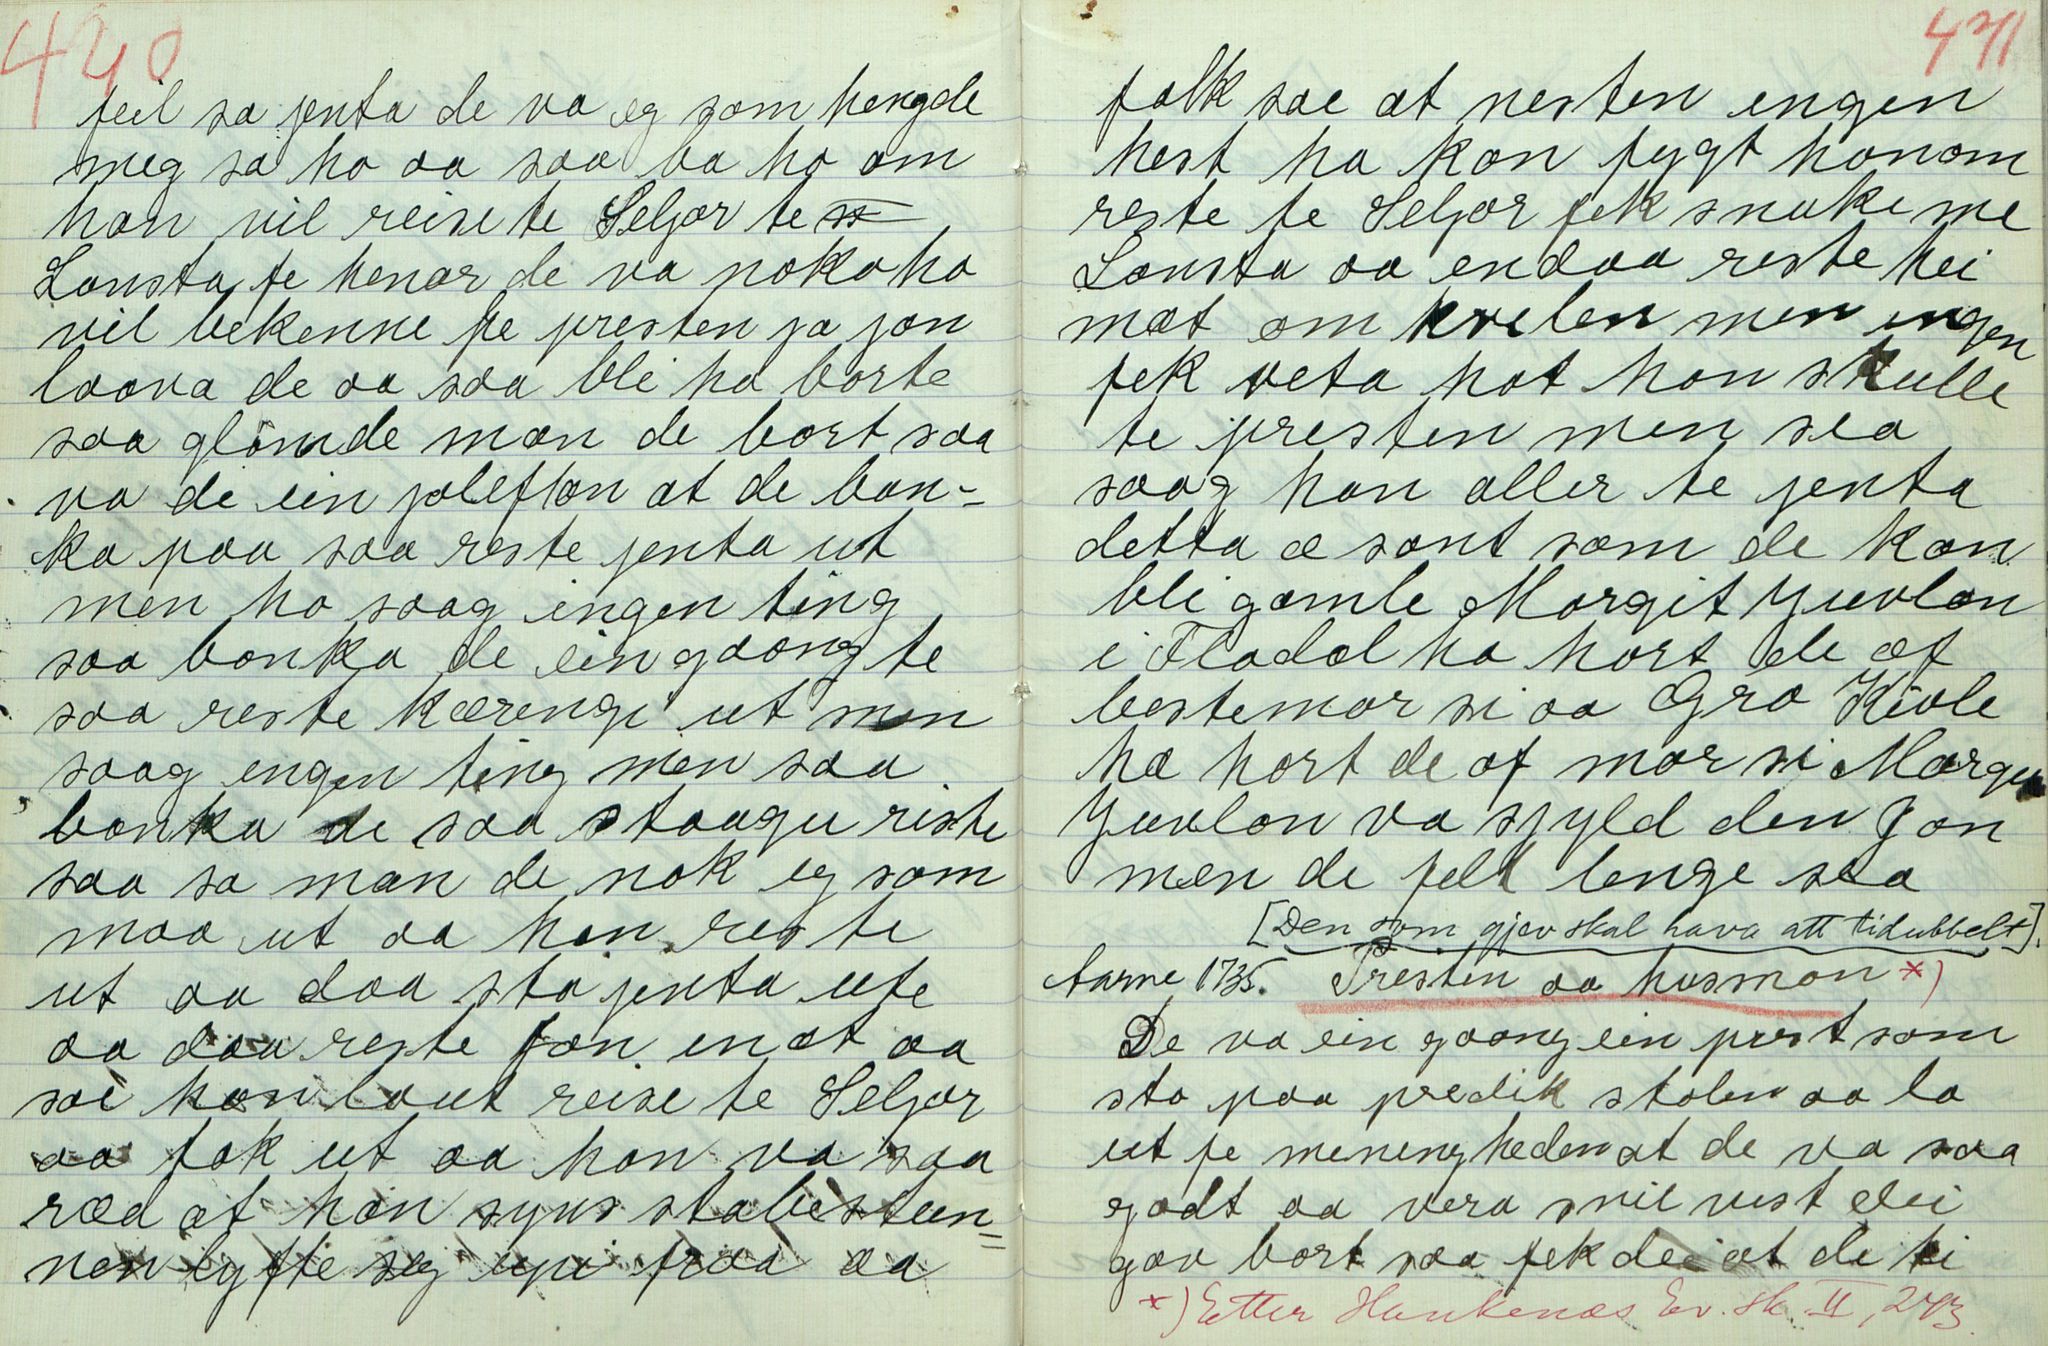 440
feil sa jenta de va eg som hengde
meg sa ho aa saa ba ho om
han vil reise te Seljor te
Lansta fe henar de va noko ho
vil bekenne fe presten ja jon
laava de aa saa blei ho borte
saa glömde man de bort saa
va de ein joleftan at de ban-
ka paa saa reste jenta ut
men ho saag ingen ting
saa banka de ein gaang te
saa reste kærengi ut men
saag engen ting men saa
banka de saa staagu riste
saa sa man de nok eg som
maa ut aa han reste
ut aa daa sto jenta ute
aa daa reste Jon inat aa
sae han laut reise te Seljor
aa fok ut aa han va saa
ræd at han synes stabesteen=
nen lyfte seg upi fraa aa
441
folk sae at nesten engen
hest ha kan fygt honom
reste te Seljor fek snake me
Lansta aa endaa reste hei
mat om kvelen men ingen
fek veta hot han skulle
te presten men sea
saag han aller te jenta
detta æ sant som de kan
bli gamle Margit Juvlan
i Fladal ha hort de af
bestemor si aa Gro Kivle
ha hort de af mor si Margit
Juvlan va sjyld den Jon
men de fell lenge sea
[Den som gjev skal hava att tidubbelt].
Aarne 1735. Presten aa husman *)
De va ein gaang ein prest som
sto paa predik stolen aa la
ut fe meneng heden at de va saa
godt aa vera snil vist dei
gav bort saa fek dei at de ti
*) Etter Haukenæs Ev. Sk. II, 243.